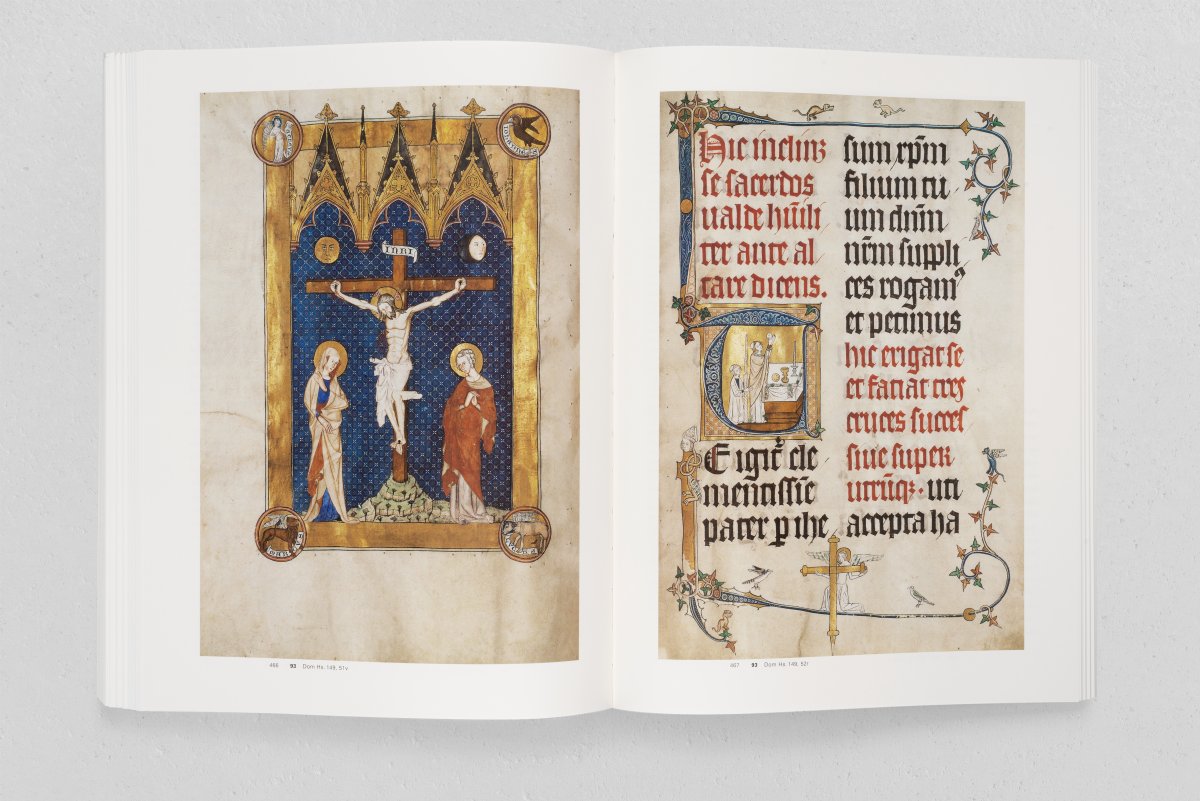 INRI
466 93 Dom Hs. 149, 51v
Hic inclinꝫ
se sacerdos
ualde hūili
ter ante al
tare dicens.
T
E igit᷑ cle
mentissīe
pater ꝑ ihe
sum xp̄m
filium tu
um dn̄m
nr̄m suppli
ces rogamꝰ
et petimus
hic erigat se
et faciat tres
cruces succes
siue super
utrūqꝫ· uti
accepta ha
467 93 Dom Hs. 149, 52r